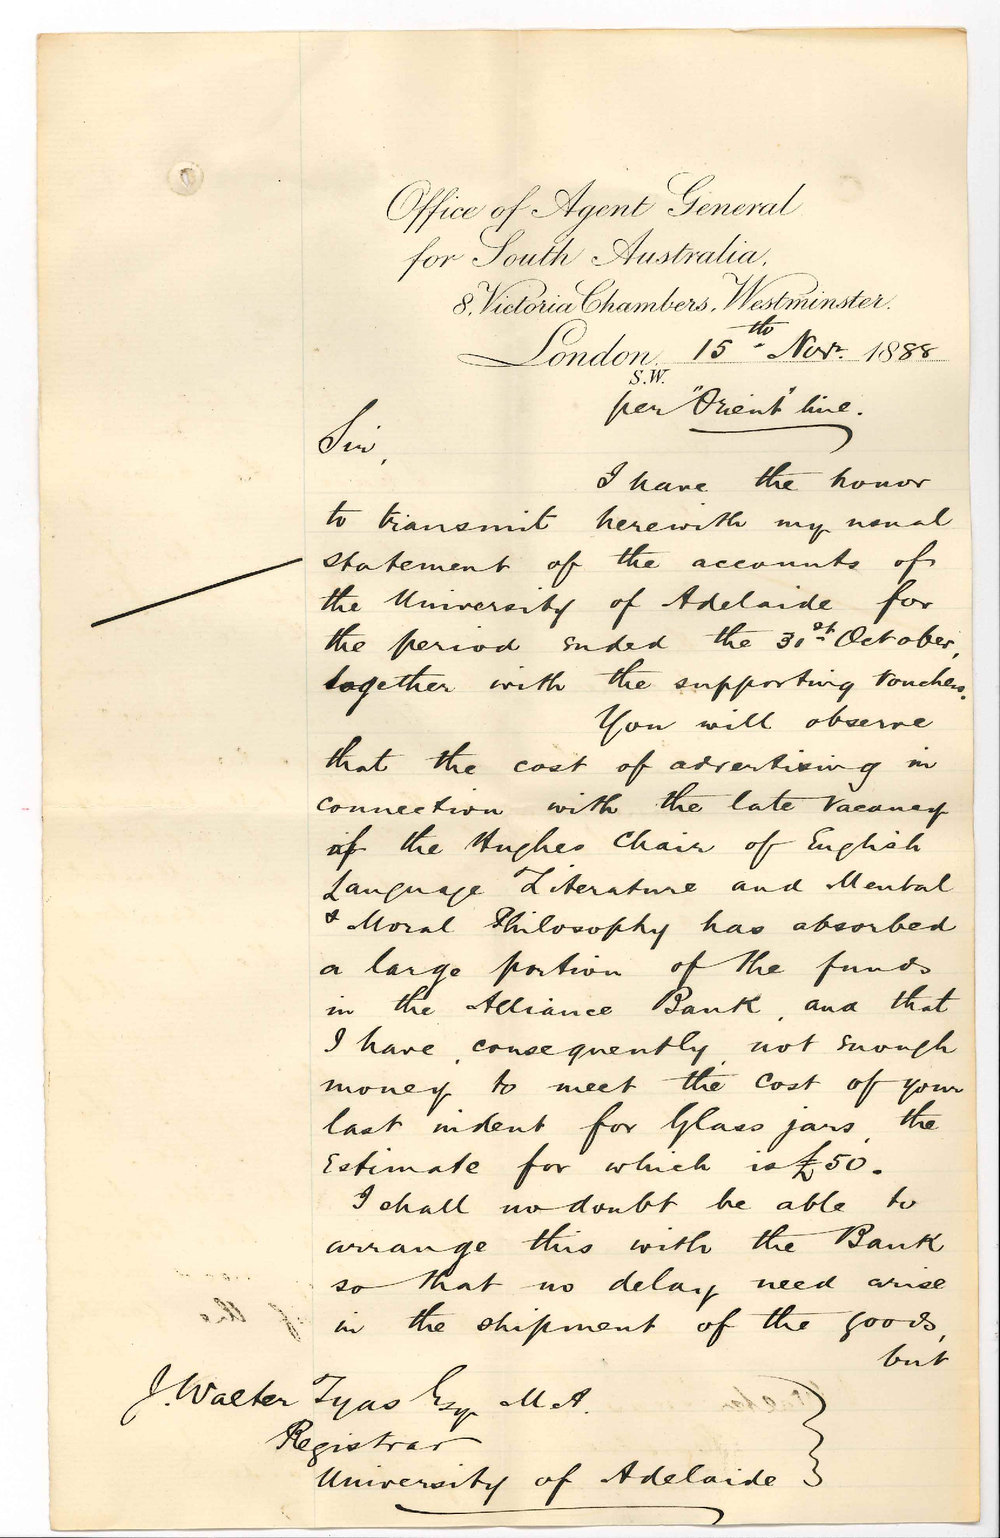 Office of Agent General
for South Australia,
8, Victoria Chambers, Westminster.
London, 15th Novr. 1888
S.W.
per "Orient" line.
Sir,
I have the honor
to transmit herewith my usual
statement of the accounts of
the University of Adelaide for
the period ended the 31st October,
together with the supporting vouchers.
You will observe
that the cost of advertising in
connection with the late vacancy
of the Hughes Chair of English
Language Literature and Mental
& Moral Philosophy has absorbed
a large portion of the funds
in the Alliance Bank, and that
I have, consequently, not enough
money to meet the cost of your
last indent for Glass jars, the
Estimate for which is £50.
I shall no doubt be able to
arrange this with the Bank
so that no delay need arise
in the shipment of the goods,
but
J. Walter Tyas Esq M.A.
Registrar
University of Adelaide